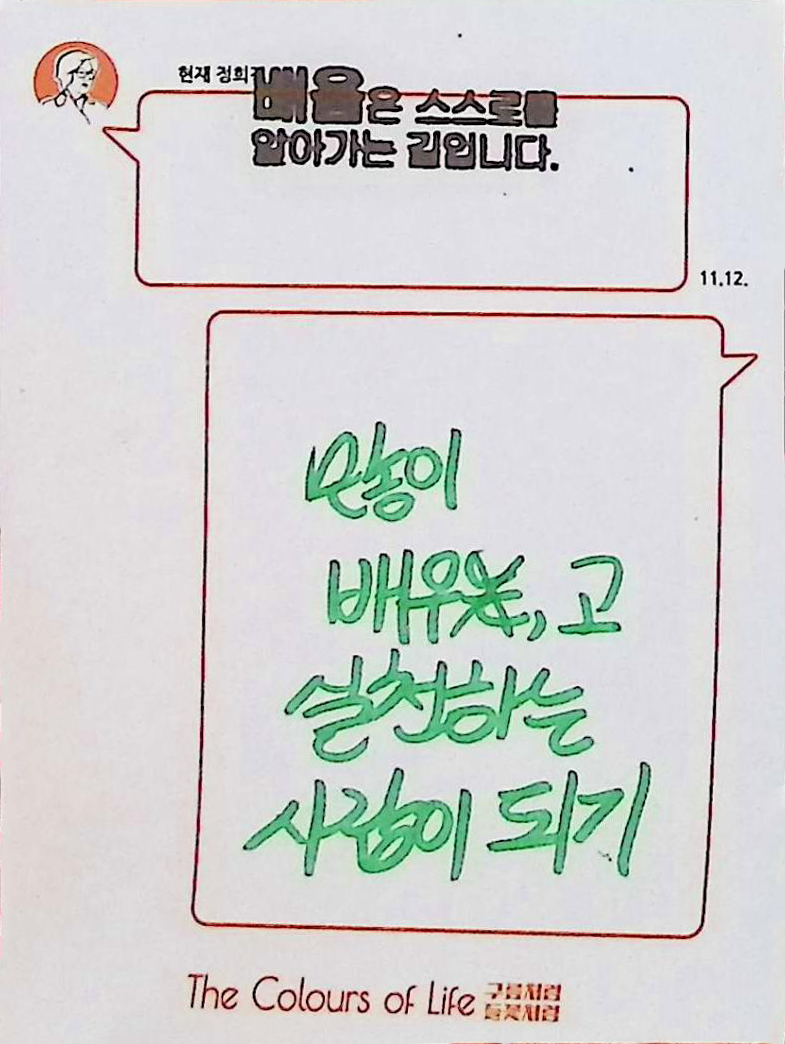 현재 정희
배움은 스스로를
알아가는 길입니다.
11.12.
많이
배우, 고
실천하는
사람이 되기
The Colours of Life 구름처럼
들꽃처럼